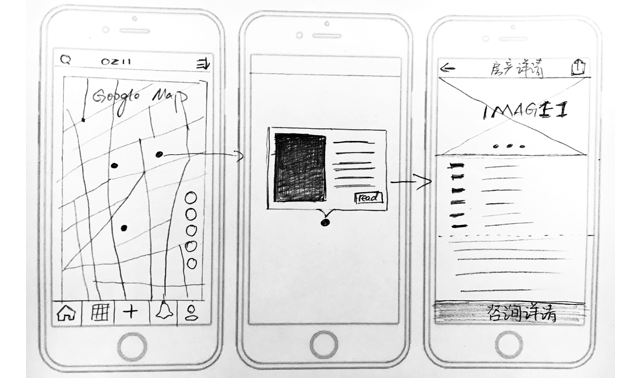 OZII
Google Map
read
房产详情
IMAGE
咨询详情